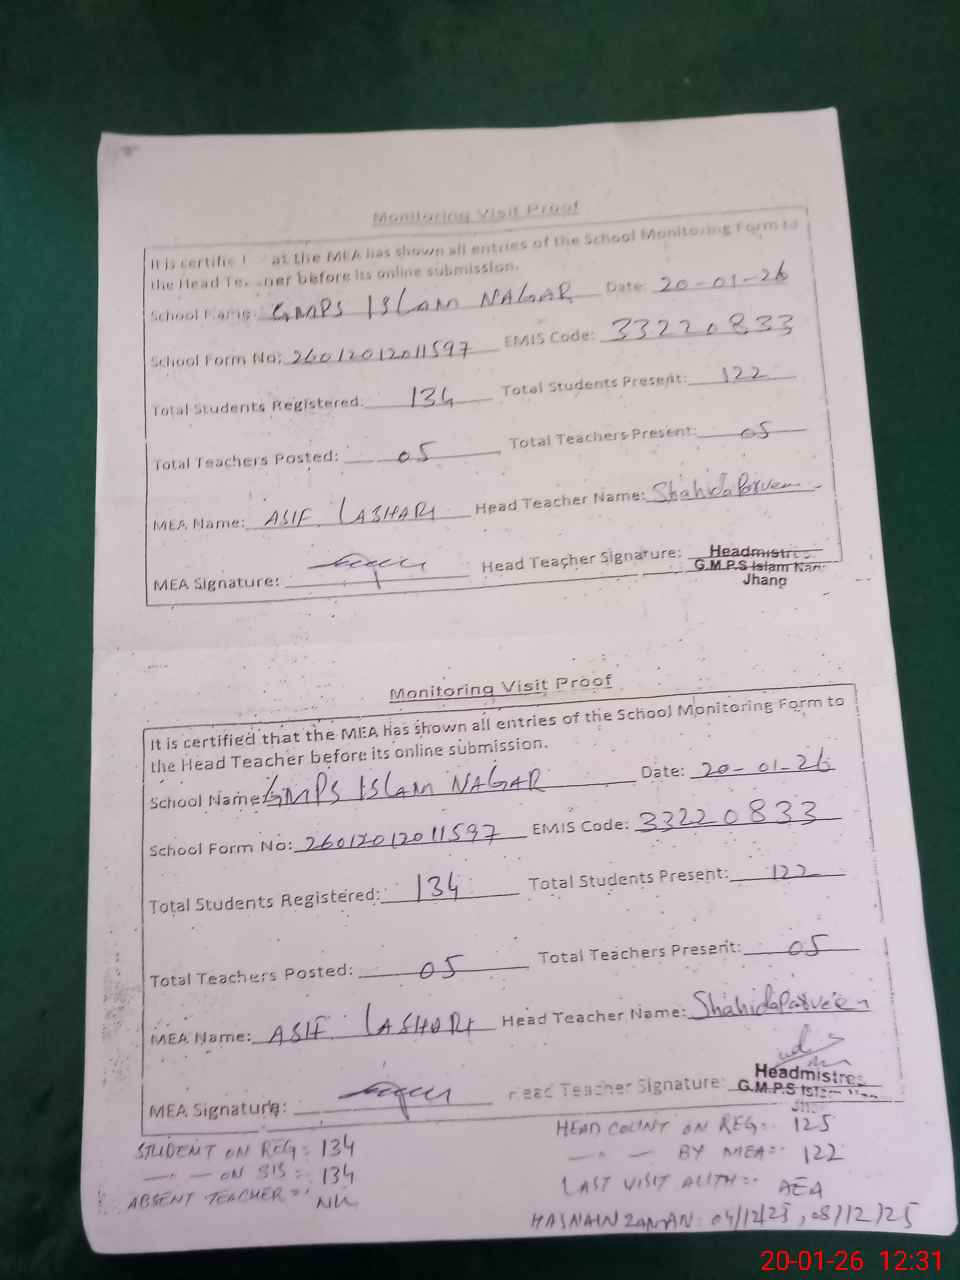 Monitoring Visit Proof
It is certifie at the MEA has shown all entries of the School Monitoring Form to
the Head Te ner before its online submission.
School Name: GMPS ISLAM NAGAR Date: 20-01-26
School Form No: 26012012011597 EMIS Code: 33220833
Total Students Registered: 134 Total Students Present: 122
Total Teachers Posted: 05 Total Teachers Present: 05
MEA Name: ASIF LASHARI Head Teacher Name: Shahida Parveen
MEA Signature: Head Teacher Signature: Headmistres
G.M.P.S Islam Nag
Jhang
Monitoring Visit Proof
It is certified that the MEA has shown all entries of the School Monitoring Form to
the Head Teacher before its online submission.
School Name GMPS ISLAM NAGAR Date: 20-01-26
School Form No: 26012012011597 EMIS Code: 33220833
Total Students Registered: 134 Total Students Present: 122
Total Teachers Posted: 05 Total Teachers Present: 05
MEA Name: ASIF LASHARI Head Teacher Name: Shahida Parveen
MEA Signature: ead Teacher Signature: Headmistres
G.M.P.S Islam
STUDENT ON REG: 134 HEAD COUNT ON REG: 125
— — ON SIS: 134 — — BY MEA: 122
ABSENT TEACHER: NIL LAST VISIT WITH: AEA
HASNAIN ZAMAN: 04/12/25, 08/12/25
20-01-26 12:31